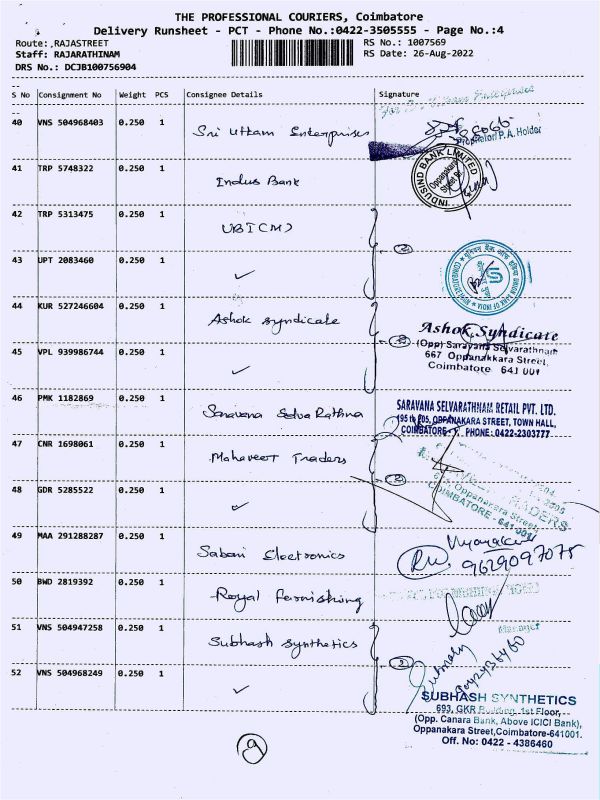 THE PROFESSIONAL COURIERS, Coimbatore
Delivery Runsheet - PCT - Phone No.:0422-3505555 - Page No.:4
Route: ,RAJASTREET
RS No.: 1007569
Staff: RAJARATHINAM
RS Date: 26-Aug-2022
DRS No.: DCJB100756904
S No Consignment No Weight PCS Consignee Details Signature
40 VNS 504968403 0.250 1 Sri Uttam Enterprises
Proprietor/ P.A. Holder
41 TRP 5748322 0.250 1 Indus Bank
INDUSIND BANK LIMITED
Oppanakara
Street Br.
42 TRP 5313475 0.250 1 UBI (M)
2
43 UPT 2083460 0.250 1 ✓
UNION BANK OF INDIA
44 KUR 527246604 0.250 1 Ashok Syndicate
Ashok Syndicate
(Opp) Sarayana Selvarathnam
667 Oppanakkara Street,
Coimbatore 641 001
45 VPL 939986744 0.250 1 ✓
46 PMK 1182869 0.250 1 Saravana Selva Rathna
SARAVANA SELVARATHNAM RETAIL PVT. LTD.
195 to 205, OPPANAKARA STREET, TOWN HALL,
COIMBATORE - 1. PHONE: 0422-2303777
47 CNR 1698061 0.250 1 Mahaveer Traders
2
48 GDR 5285522 0.250 1 ✓
Oppanakara Street,
COIMBATORE - 641 001
49 MAA 291288287 0.250 1 Sabari Electronics
9629097075
50 BWD 2819392 0.250 1 Royal Fernishing
Manager
51 VNS 504947258 0.250 1 Subhash Synthetics
2
52 VNS 504968249 0.250 1 ✓
SUBHASH SYNTHETICS
693, GKR Building, 1st Floor,
(Opp. Canara Bank, Above ICICI Bank),
Oppanakara Street,Coimbatore-641001.
Off. No: 0422 - 4386460
9